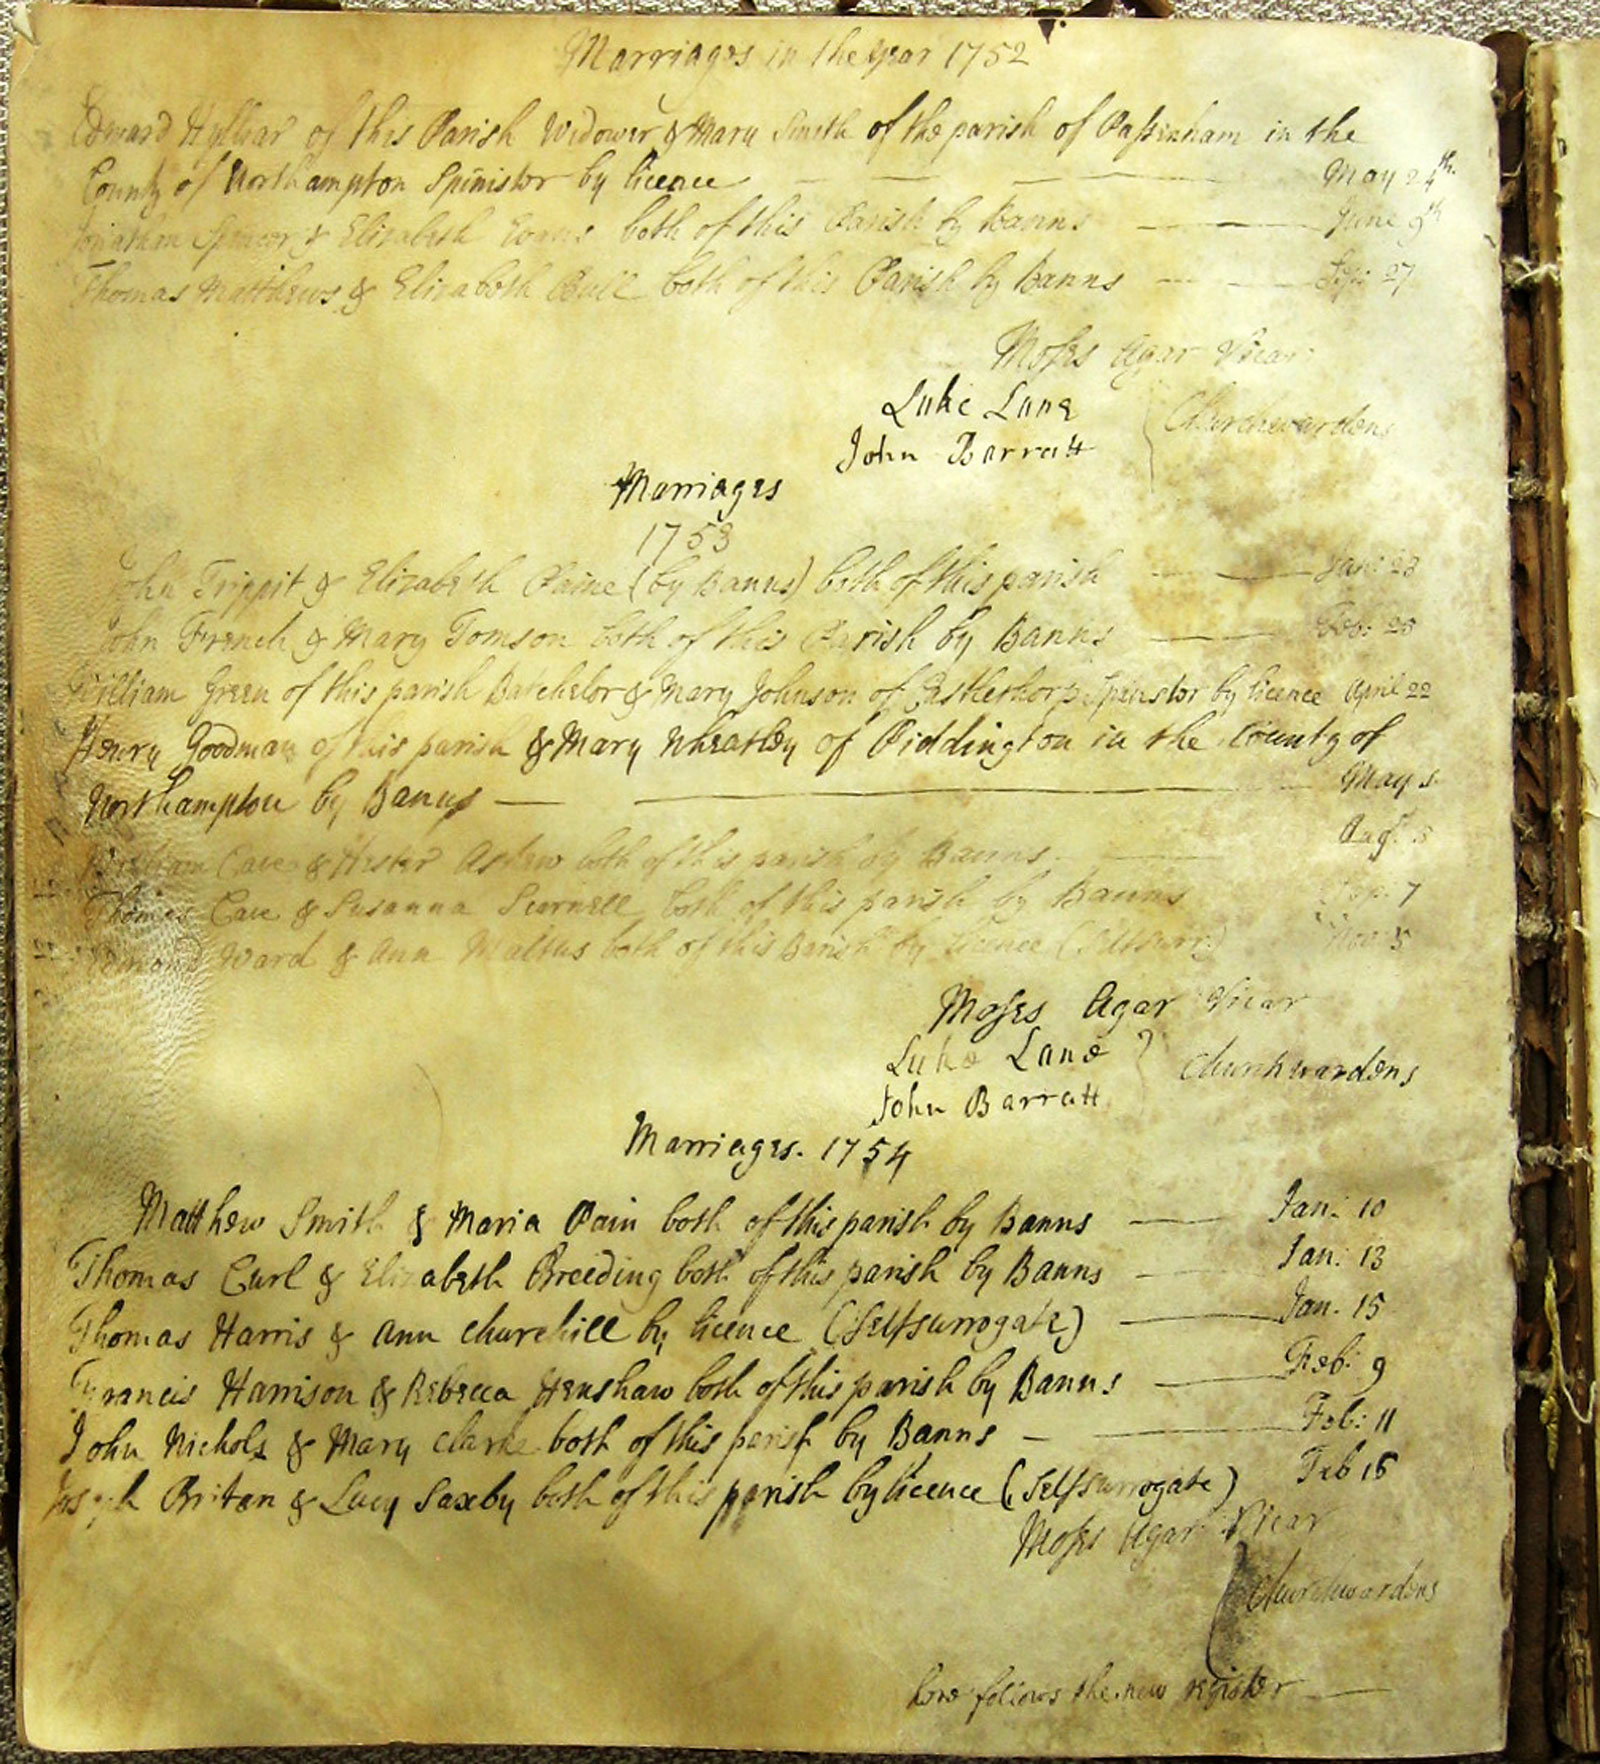 Marriages in the year 1752
Edward Hylliar of this Parish Widower & Mary Smith of the parish of Paſsenham in the
County of Northampton Spinistor by licence May 24th.
Jonathan Spencer & Elizabeth Evans both of this Parish by Banns June 9th
Thomas Matthews & Elizabeth Bull both of this Parish by Banns Sep: 27
Moſes Agar Vicar
Luke Lane
John Barratt
Churchwardens
Marriages
1753
John Trippit & Elizabeth Paine (by Banns) both of this parish Jan: 23
John French & Mary Tomson both of this Parish by Banns Feb: 25
William Green of this parish Batchelor & Mary Johnson of Castlethorp Spinstor by licence April 22
Henry Goodman of this parish & Mary Wheatley of Piddington in the County of
Northampton by Banns May
William Cave & Hester Askew both of this parish by Banns Augt. 5
Thomas Cave & Susanna Scurnell both of this parish by Banns Sep. 7
Ward & Ann Maltus both of this Parish by licence (Selfsurr:) Nov: 5
Moſes Agar Vicar
Luke Lane
John Barratt
Churchwardens
Marriages. 1754
Matthew Smith & Maria Pain both of this parish by Banns Jan: 10
Thomas Curl & Elizabeth Breeding both of this parish by Banns Jan: 13
Thomas Harris & Ann Churchill by licence (Selfsurrogate) Jan. 15
Francis Harrison & Rebecca Henshaw both of this parish by Banns Feb: 9
John Nichols & Mary Clarke both of this parish by Banns Feb: 11
Joseph Britan & Lucy Saxby both of this parish by licence (Selfsurrogate) Feb 15
Moſes Agar Vicar
Churchwardens
here follows the new register